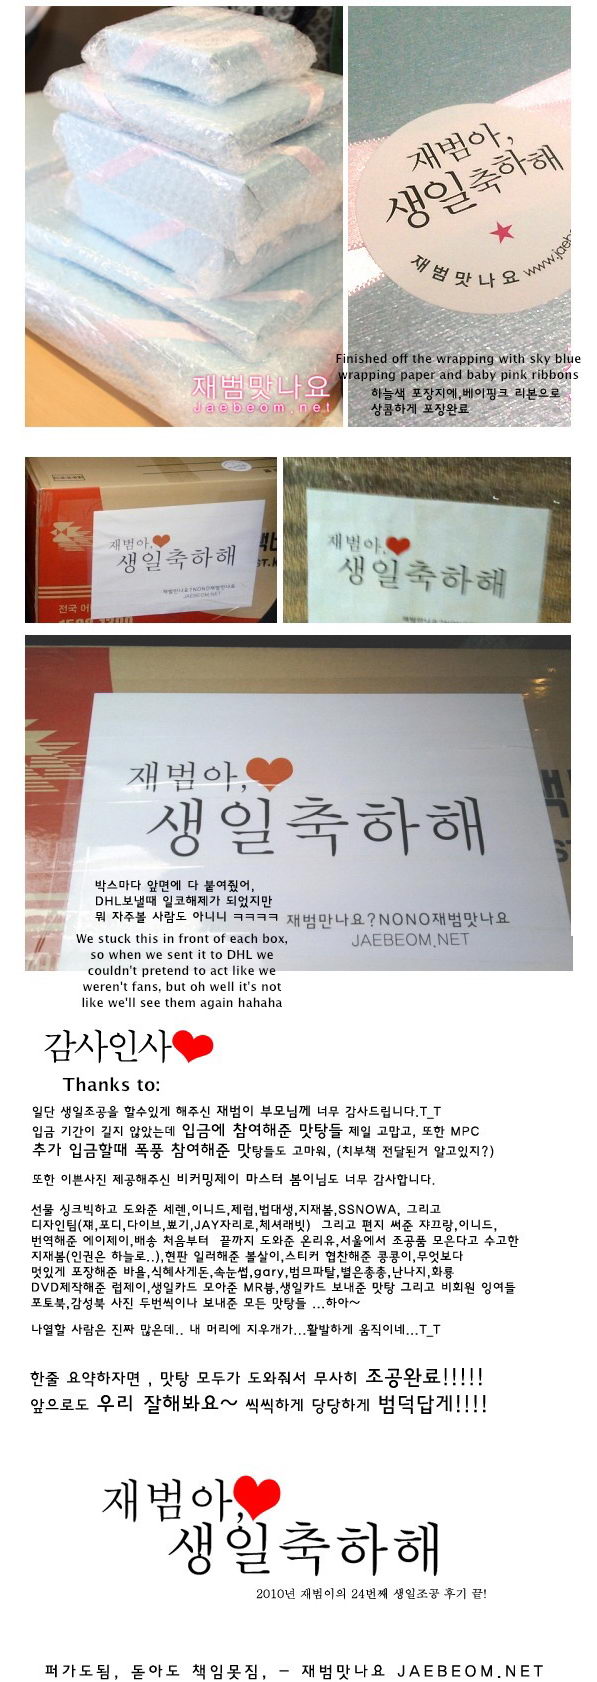 재범아,
생일축하해
재범맛나요 www.jaeb
재범맛나요
Jaebeom.net
Finished off the wrapping with sky blue
wrapping paper and baby pink ribbons
하늘색 포장지에,베이핑크 리본으로
상콤하게 포장완료
재범아,
생일축하해
재범만나요?NONO재범맛나요
JAEBEOM.NET
전국 어
재범아,
생일축하해
재범아,
생일축하해
박스마다 앞면에 다 붙여줬어,
DHL보낼때 일코해제가 되었지만
뭐 자주볼 사람도 아니니 ㅋㅋㅋㅋ
재범만나요?NONO재범맛나요
JAEBEOM.NET
We stuck this in front of each box,
so when we sent it to DHL we
couldn't pretend to act like we
weren't fans, but oh well it's not
like we'll see them again hahaha
감사인사
Thanks to:
일단 생일조공을 할수있게 해주신 재범이 부모님께 너무 감사드립니다.T_T
입금 기간이 길지 않았는데 입금에 참여해준 맛탕들 제일 고맙고, 또한 MPC
추가 입금할때 폭풍 참여해준 맛탕들도 고마워, (치부책 전달된거 알고있지?)
또한 이쁜사진 제공해주신 비커밍제이 마스터 봄이님도 너무 감사합니다.
선물 싱크빅하고 도와준 세렌,이니드,제럽,법대생,지재봄,SSNOWA, 그리고
디자인팀(쟤,포디,다이브,뽀기,JAY자리로,체셔래빗) 그리고 편지 써준 쟈끄랑,이니드,
번역해준 에이제이,배송 처음부터 끝까지 도와준 온리유,서울에서 조공품 모은다고 수고한
지재봄(인권은 하늘로..),현판 일러해준 볼살이,스티커 협찬해준 콩콩이,무엇보다
멋있게 포장해준 바율,식혜사게돈,속눈썹,gary,범므파탈,별은총총,난나지,화룡
DVD제작해준 럽제이,생일카드 모아준 MR븅,생일카드 보내준 맛탕 그리고 비회원 잉여들
포토북,감성북 사진 두번씩이나 보내준 모든 맛탕들 ...하아~
나열할 사람은 진짜 많은데.. 내 머리에 지우개가...활발하게 움직이네...T_T
한줄 요약하자면 , 맛탕 모두가 도와줘서 무사히 조공완료!!!!!
앞으로도 우리 잘해봐요~ 씩씩하게 당당하게 범덕답게!!!!
재범아,
생일축하해
2010년 재범이의 24번째 생일조공 후기 끝!
퍼가도됨, 돋아도 책임못짐, - 재범맛나요 JAEBEOM.NET